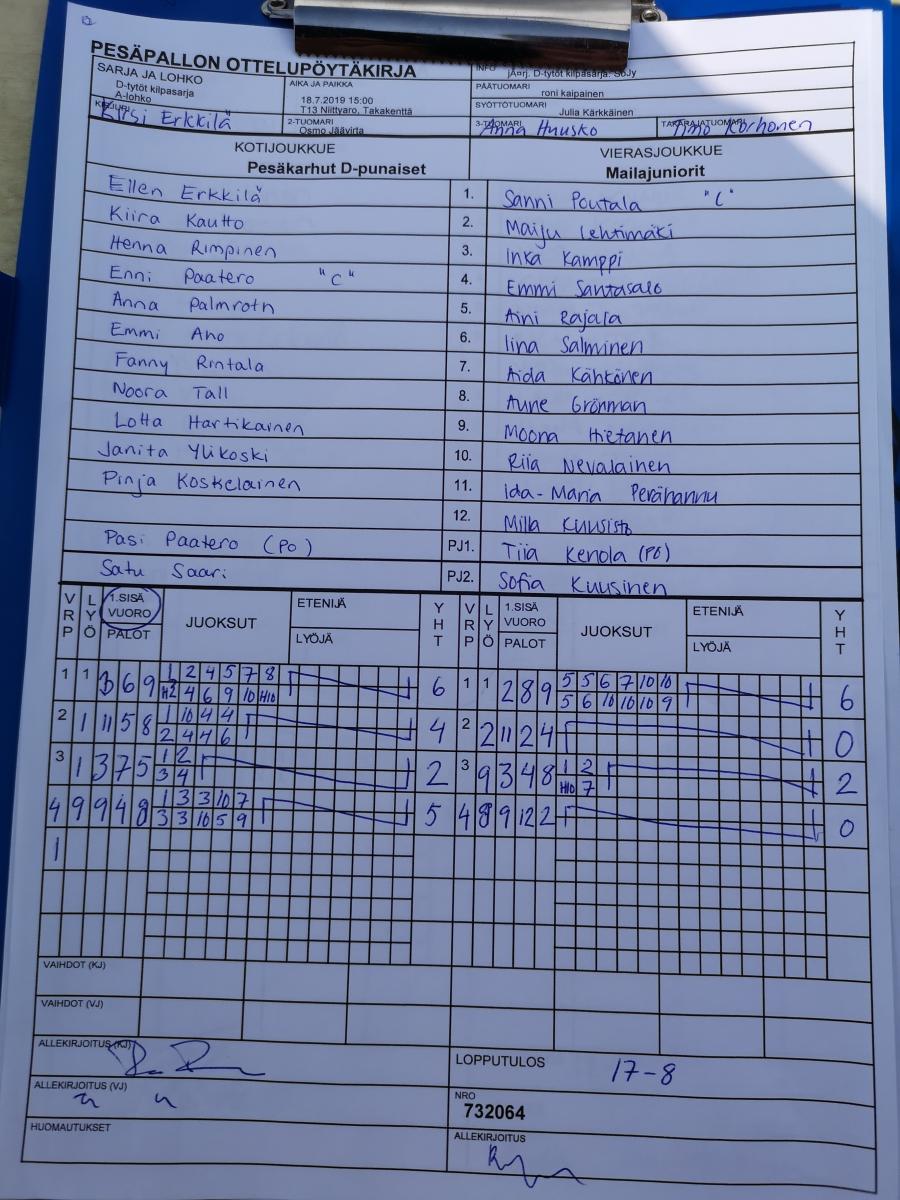 PESÄPALLON OTTELUPÖYTÄKIRJA
SARJA JA LOHKO
D-tytöt kilpasarja
A-lohko
AIKA JA PAIKKA
18.7.2019 15:00
T13 Niittyaro, Takakenttä
INFO
jÄnj. D-tytöt kilpasarja: SoJy
PÄÄTUOMARI
roni kaipainen
SYÖTTÖTUOMARI
Julia Kärkkäinen
KIRJURI
Kirsi Erkkilä
2-TUOMARI
Osmo Jäävirta
3-TUOMARI
Anna Huusko
TAKARAJATUOMARI
Timo Korhonen
KOTIJOUKKUE
Pesäkarhut D-punaiset
VIERASJOUKKUE
Mailajuniorit
Ellen Erkkilä 1. Sanni Poutala "C"
Kiira Kautto 2. Maiju Lehtimäki
Henna Rimpinen 3. Inka Kamppi
Enni Paatero "C" 4. Emmi Santasalo
Anna Palmroth 5. Aini Rajala
Emmi Aho 6. Iina Salminen
Fanny Rintala 7. Aida Kähkönen
Noora Tall 8. Aune Grönman
Lotta Hartikainen 9. Moona Hietanen
Janita Ylikoski 10. Riia Nevalainen
Pinja Koskelainen 11. Ida-Maria Perähannu
12. Milla Kuusisto
Pasi Paatero (PO) PJ1. Tiia Kenola (PO)
Satu Saari PJ2. Sofia Kuusinen
VRP LYÖ 1.SISÄ VUORO PALOT JUOKSUT ETENIJÄ LYÖJÄ YHT VRP LYÖ 1.SISÄ VUORO PALOT JUOKSUT ETENIJÄ LYÖJÄ YHT
1 1 3 6 9 1 2 4 5 7 8 6 1 1 2 8 9 5 5 6 7 10 10 6
H2 4 6 9 10 H10 5 6 10 10 10 9
2 1 11 5 8 1 10 4 4 4 2 2 11 2 4 0
2 4 4 6
3 1 3 7 5 1 2 2 3 9 3 4 8 1 2 2
3 4 H10 7
4 9 9 4 8 1 3 3 10 7 5 4 8 9 12 2 0
3 3 10 5 9
1
VAIHDOT (KJ)
VAIHDOT (VJ)
ALLEKIRJOITUS (KJ)
LOPPUTULOS
17-8
ALLEKIRJOITUS (VJ)
NRO
732064
HUOMAUTUKSET
ALLEKIRJOITUS